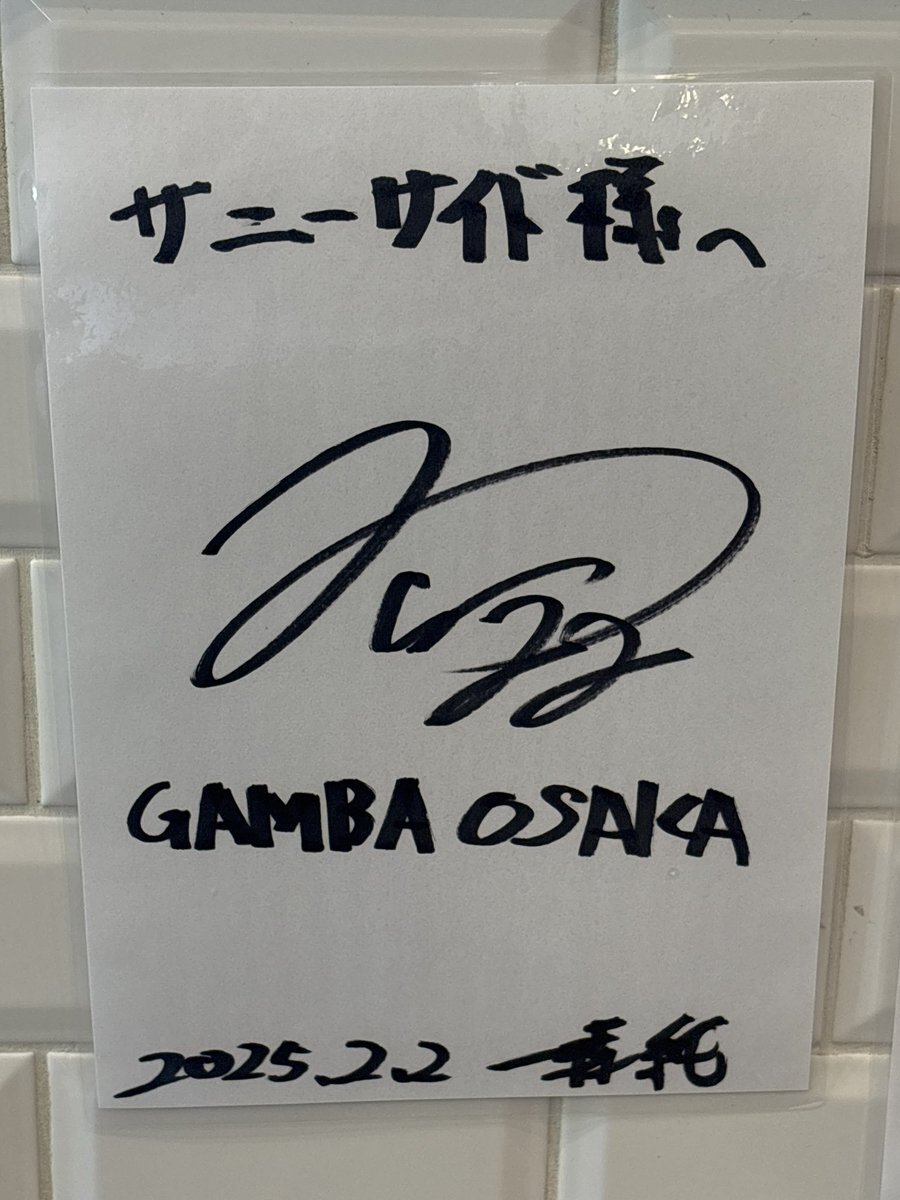 サニーサイド様へ
22
GAMBA OSAKA
2025.2.2 一森純